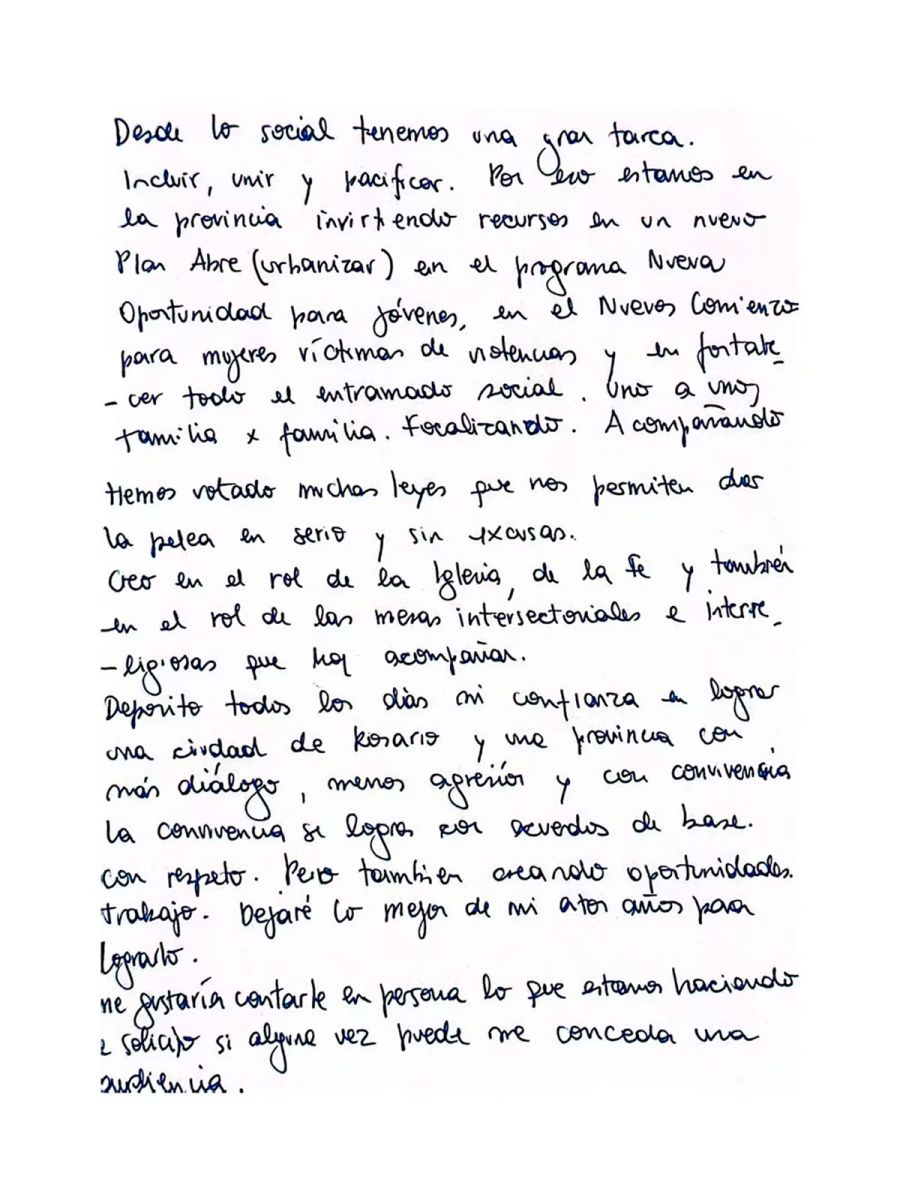 Desde lo social tenemos una gran tarea.
Incluir, unir y pacificar. Por eso estamos en
la provincia invirtiendo recursos en un nuevo
Plan Abre (urbanizar) en el programa Nueva
Oportunidad para jóvenes, en el Nuevos Comienzos
para mujeres víctimas de violencias y en fortale_
-cer todo el entramado social. Uno a uno,
familia x familia. Focalizando. Acompañando
Hemos votado muchas leyes que nos permiten dar
la pelea en serio y sin excusas.
Creo en el rol de la Iglesia, de la fe y también
en el rol de las mesas intersectoriales e interre_
-ligiosas que hay acompañar.
Deposito todos los días mi confianza en lograr
una ciudad de Rosario y una provincia con
más diálogo, menos agresión y con convivencia
la convivencia se logra por acuerdos de base.
con respeto. Pero también creando oportunidades.
trabajo. Dejaré lo mejor de mi años para
lograrlo.
me gustaría contarle en persona lo que estamos haciendo
solicito si alguna vez puede me conceda una
audiencia.